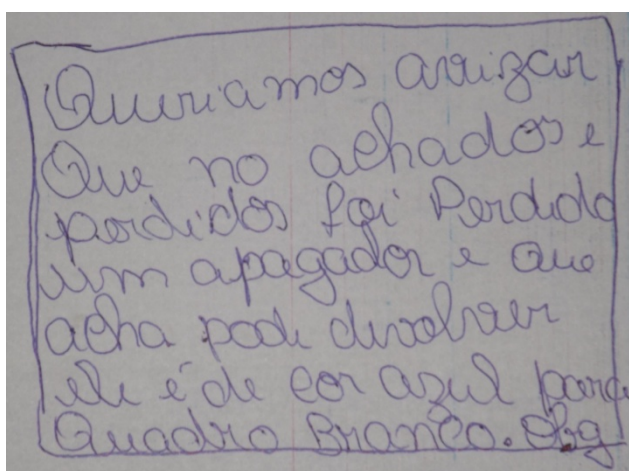 Queriamos avizar
Que no achados e
perdidos foi Perdido
um apagador e que
acha pode divolver
ele é de cor azul para
Quadro Branco. obg